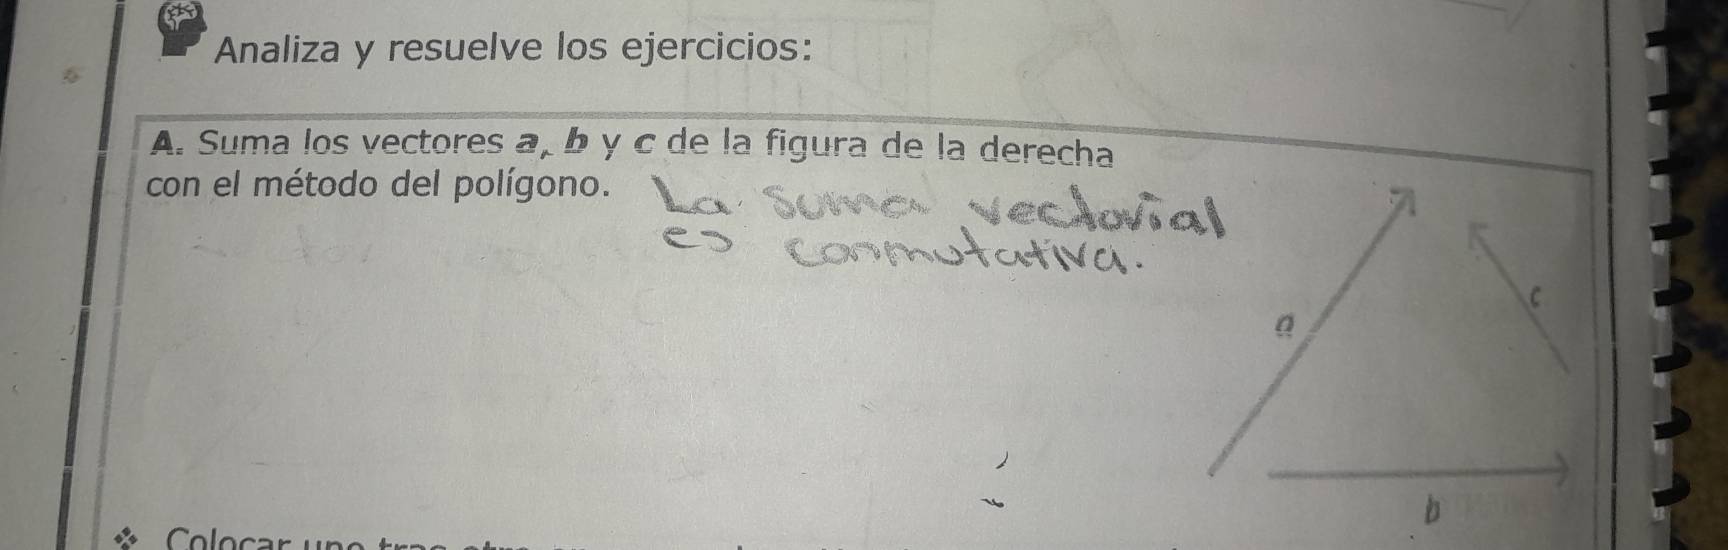 Analiza y resuelve los ejercicios:
A. Suma los vectores a, b y c de la figura de la derecha
con el método del polígono.
La suma vectorial
es conmutativa.
a
c
b
Colocar uno tras otro